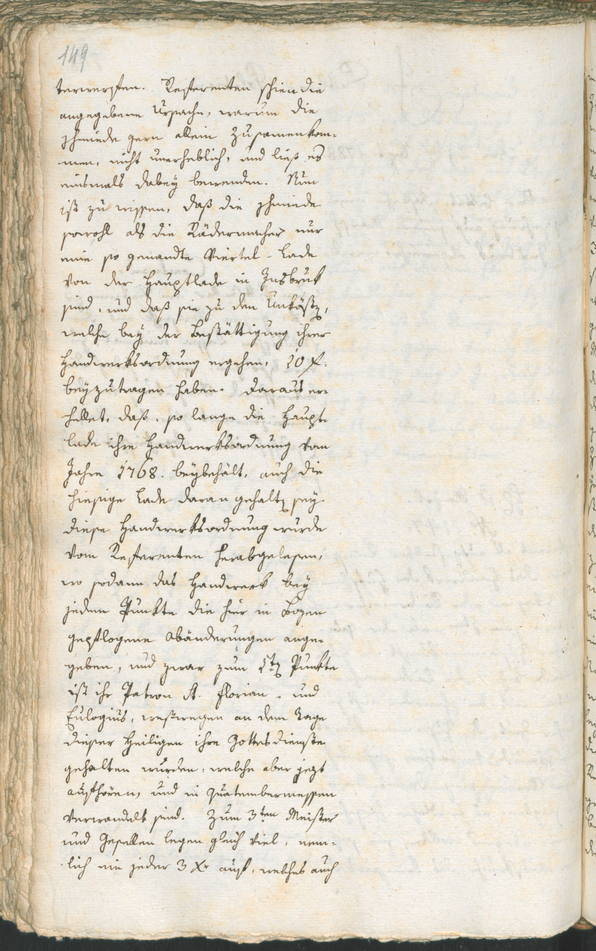 149
terwerfen. Referenten schien die
angegebene Ursache, warum die
Schmiede gern allein zusamenkom-
men, nicht unerheblich, und ließ es
einsmals dabey bewenden. Nun
ist zu wissen, daß die Schmiede
sowohl als die Rädermacher nur
eine so genandte Viertel-Lade
von der Hauptlade in Insbruk
sind, und daß sie zu den Unkösten,
welche bey der Bestättigung ihrer
Handwerksordnung ergehen, 20 f.
beyzutragen haben. Daraus er-
hellet, daß, so lange die Haupt-
lade ihre Handwerksordnung vom
Jahre 1768. beybehält, auch die
hiesige Lade daran gehalten sey.
Diese Handwerksordnung wurde
vom Referenten herabgelesen,
wo sodann das Handwerk bey
jedem Punkte die hier in Bozen
gepflogene Abänderungen ange-
geben, und zwar zum 1ten Punkte
ist ihr Patron St. Florian, und
Eulogius, weßwegen an dem Tage
dieser Heiligen ihre Gottesdienste
gehalten wurden, welche aber jezt
aufhören, und in Quatembermessen
verwandelt sind. Zum 3ten Meister
und Gesellen legen gleich viel, nem-
lich ein jeder 3 Xr auf, welches auch